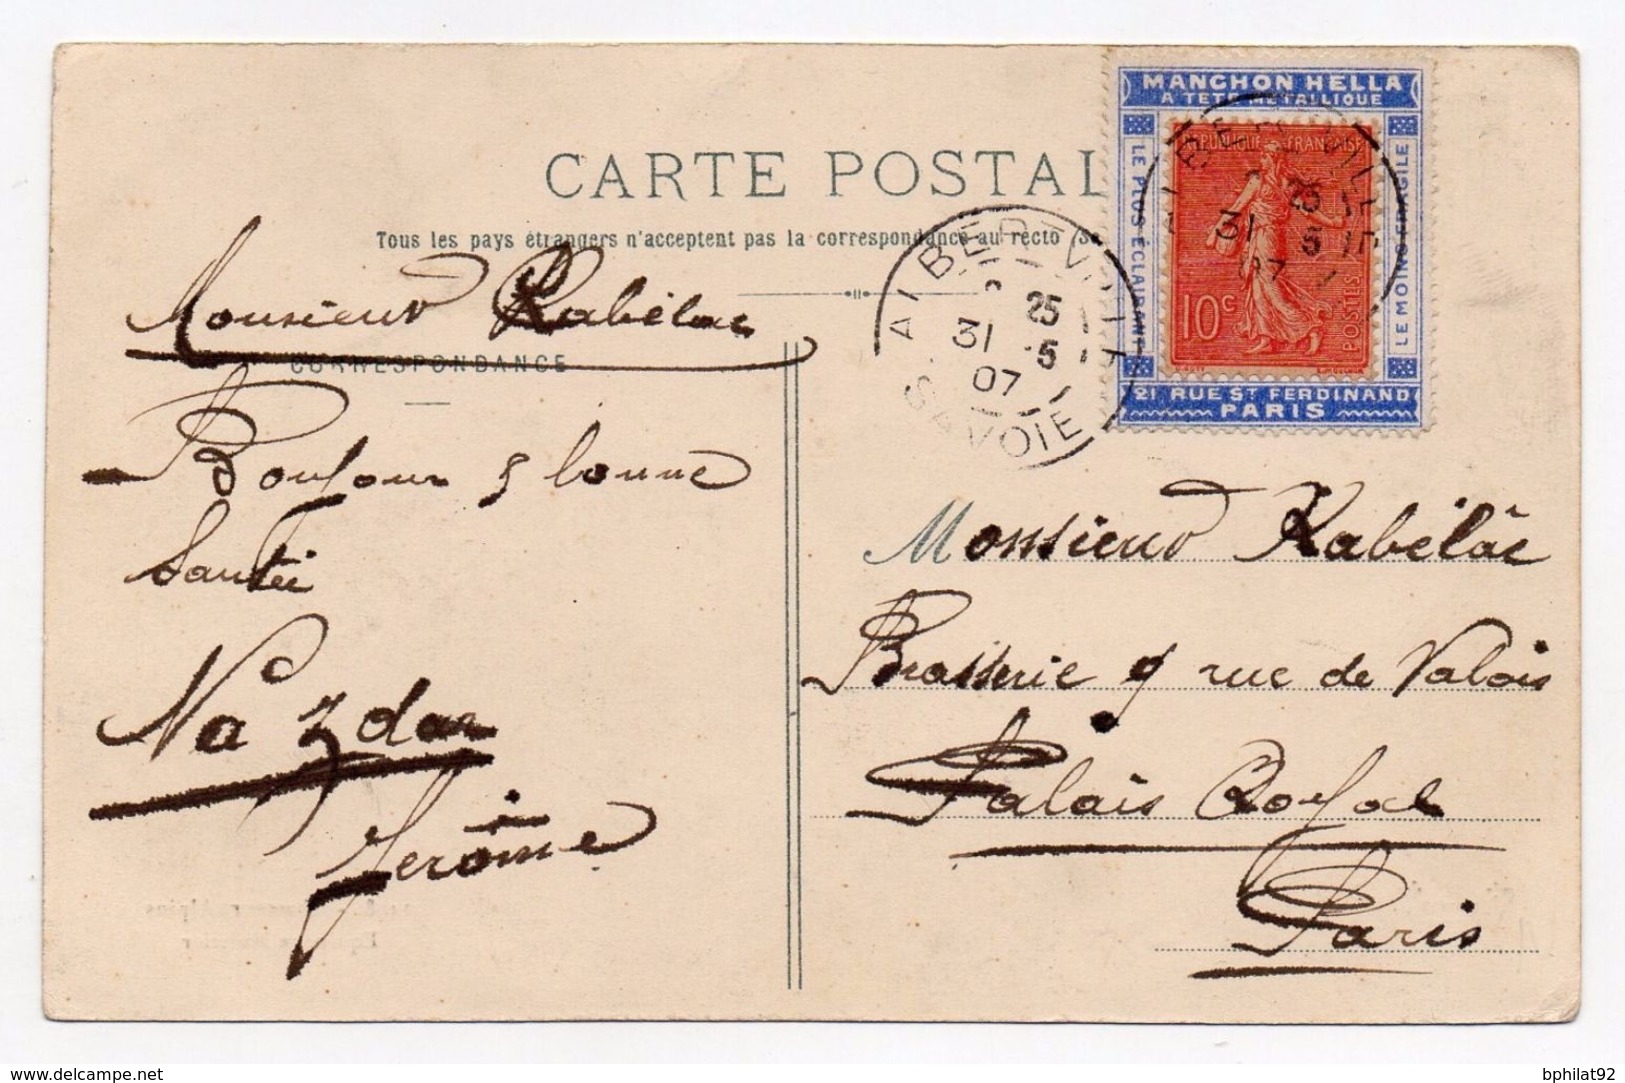 MANCHON HELLA
A TETE METALLIQUE
LE PLUS ÉCLAIRANT
LE MOINS FRAGILE
REPUBLIQUE FRANÇAISE
10c
POSTES
21 RUE ST FERDINAND
PARIS
CARTE POSTAL
Tous les pays étrangers n'acceptent pas la correspondance au recto (Se
ALBERTVILLE
25
31 5
07
SAVOIE
ALBERTVILLE
25
31 5
07
CORRESPONDANCE
Monsieur Kabélac
Bonjour & bonne
Santée
Na zdar
Jerôme
Monsieur Kabélâc
Brasserie 9 rue de Valois
Palais Royal
Paris
www.delcampe.net
bphilat92